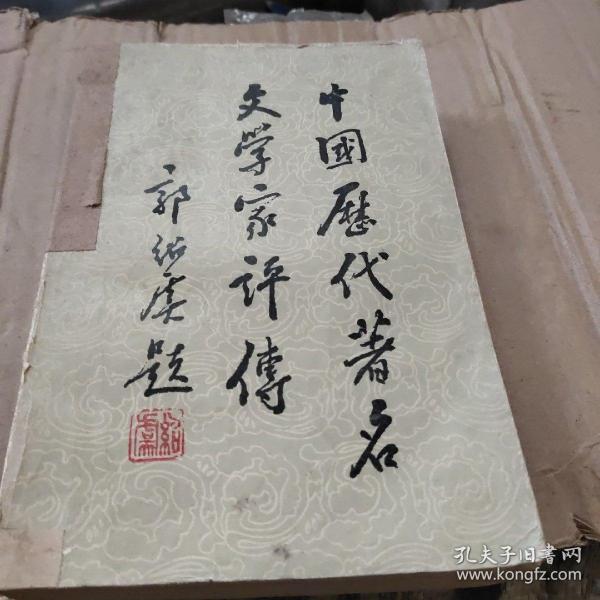 中國歷代著名
文学家评傳
郭绍虞题
紹虞
孔夫子旧书网
www.kongfz.com